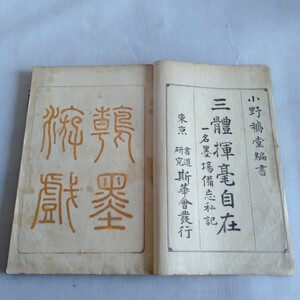 小野鵞堂編書
三體揮毫自在
一名墨場備忘私記
東京 書道研究 斯華會發行
翰墨
游戲